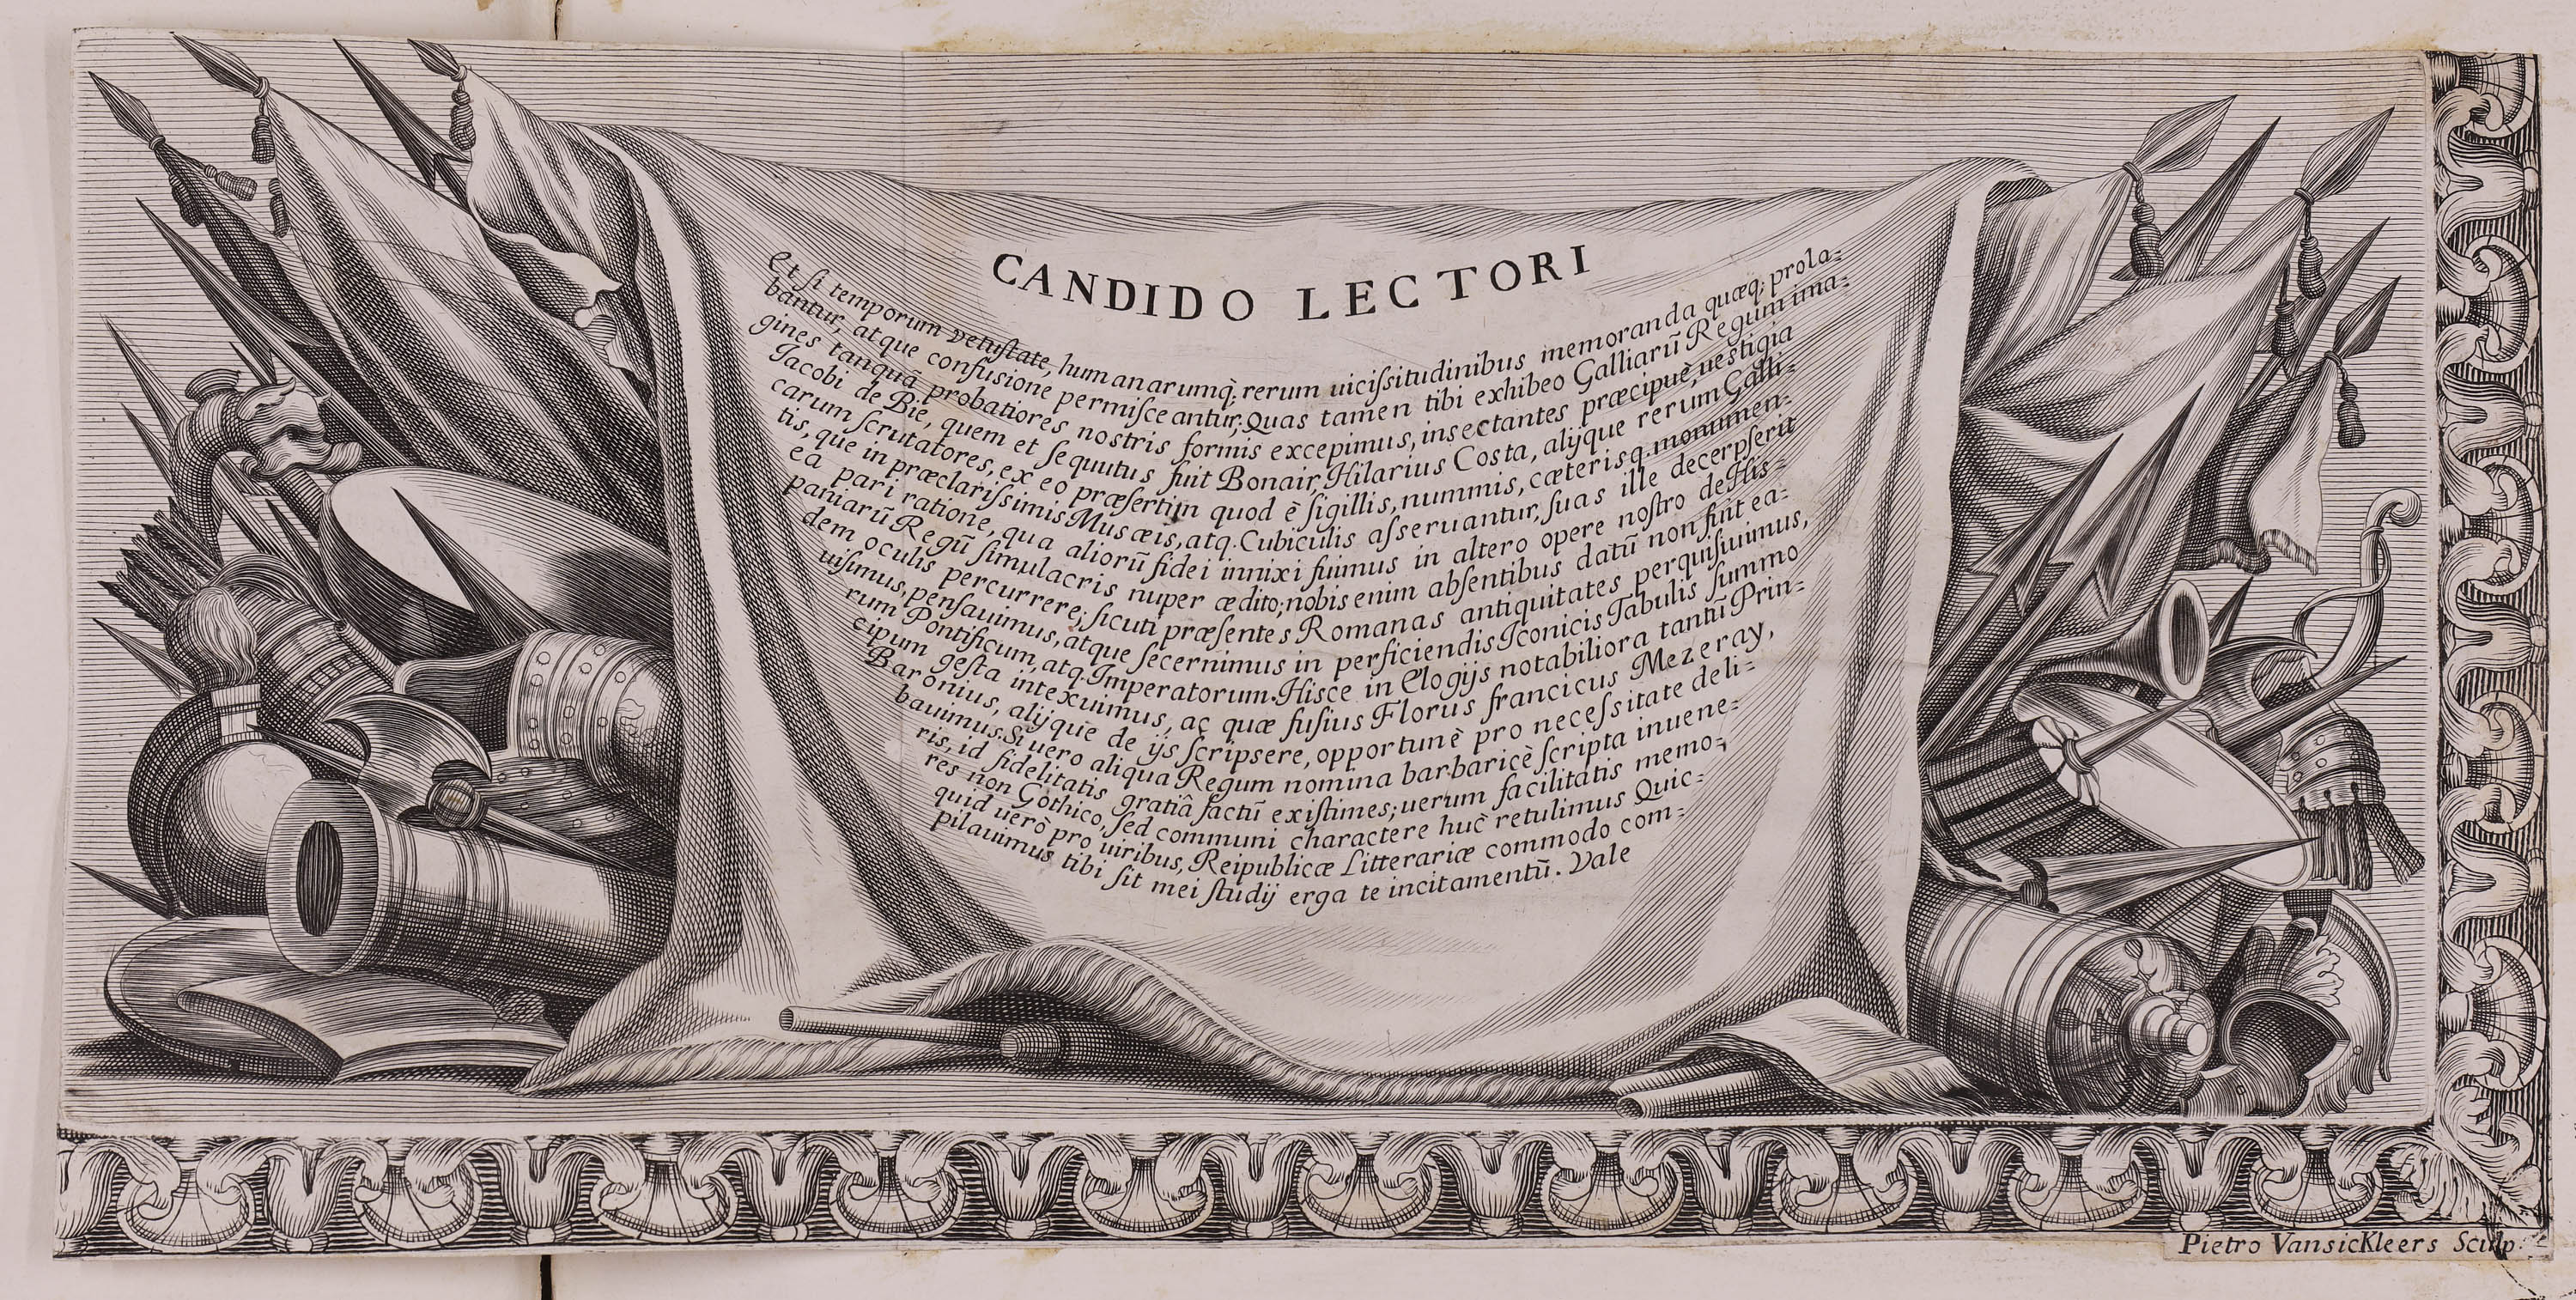 CANDIDO LECTORI
Et ſi temporum vetuſtate, humanarumq; rerum uiciſsitudinibus memoranda quæq; prola=
bantur, atque confusione permiſceantur; Quas tamen tibi exhibeo Galliarũ Regum ima=
gines tanquã probatiores nostris formis excepimus, insectantes præcipuè, uestigia
Jacobi de Bie, quem et ſequutus fuit Bonair, Hilarius Costa, alijque rerum Galli=
carum ſcrutatores, ex eo præſertim quod è ſigillis, nummis, cæterisq. monumen=
tis, que in præclariſsimis Musæis, atq. Cubiculis aſseruantur, ſuas ille decerpſerit
ea pari ratione, qua aliorũ fidei innixi fuimus in altero opere noſtro de His=
paniarũ Regũ ſimulacris nuper ædito; nobis enim abſentibus datũ non fuit ea=
dem oculis percurrere; ſicuti præſentes Romanas antiquitates perquiſiuimus,
uiſimus, penſauimus, atque ſecernimus in perficiendis Iconicis Tabulis ſummo
rum Pontificum, atq. Imperatorum. Hisce in Elogijs notabiliora tantũ Prin=
cipum geſta intexuimus, ac quæ fuſius Florus francicus Mezeray,
Baronius, alijque de ijs ſcripsere, opportunè pro neceſsitate deli=
bauimus. Si uero aliqua Regum nomina barbaricè ſcripta inuene=
ris, id fidelitatis gratiã factũ exiſtimes; uerum facilitatis memo=
res non Gothico, ſed communi charactere huc retulimus Quic=
quid uerò pro uiribus, Reipublicæ Litterariæ commodo com=
pilauimus tibi ſit mei ſtudij erga te incitamentũ. Vale
Pietro VansicKleers Sculp.